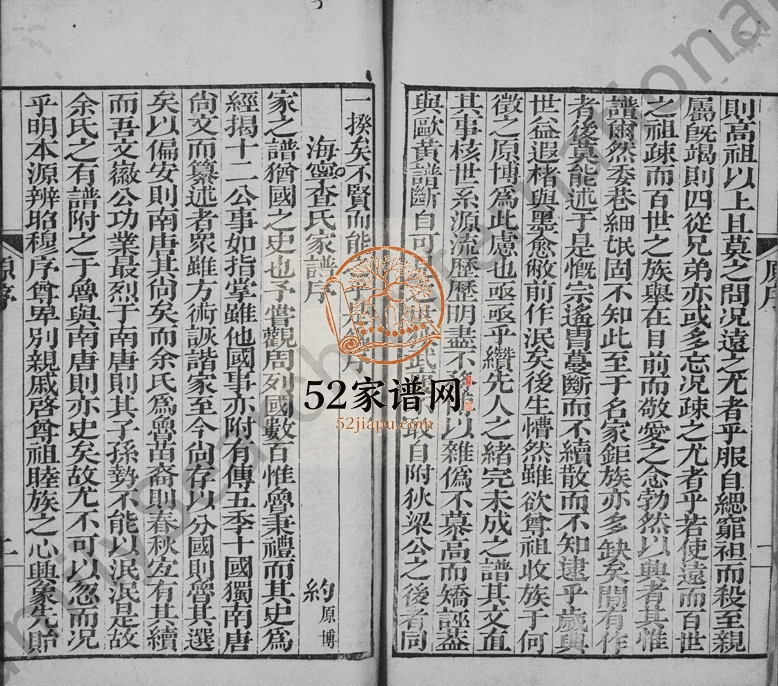 則高祖以上且莫之問况遠之尤者乎服自緦窮袒而殺至親
屬旣竭則四從兄弟亦或多忘况疎之尤者乎若使遠而百世
之祖疎而百世之族舉在目前而敬愛之念勃然以興者其惟
譜爾然委巷細氓固不知此至于名家鉅族亦多缺矣間有作
者後莫能述于是慨宗遙冑蔓斷而不續散而不知逮乎歲與
世益遐楮與墨愈敝前作泯矣後生懵然雖欲尊祖收族于何
徵之原博爲此慮也亟亟乎纘先人之緒完未成之譜其文直
其事核世系源流歷歷明盡不 以雜僞不慕高而矯誣葢
與歐黃譜斷自可 武 最自附狄梁公之後者同
一揆矣不賢而能 乎
海寧查氏家譜序
約 原博
家之譜猶國之史也予嘗觀周列國數百惟魯秉禮而其史爲
經揭十二公事如指掌雖他國事亦附有傳五季十國獨南唐
尙文而纂述者衆雖方術詼諧家至今尙存以分國則魯其選
矣以偏安則南唐其尙矣而余氏爲魯苗裔則春秋宐有其續
而吾文徽公功業最烈于南唐則其子孫勢不能以泯泯是故
余氏之有譜附之于魯與南唐則亦史矣故尤不可以忽而况
乎明本源辨昭穆序尊卑別親戚啓尊祖睦族之心與象先貽
原序
二
52家谱网
52jiapu.com